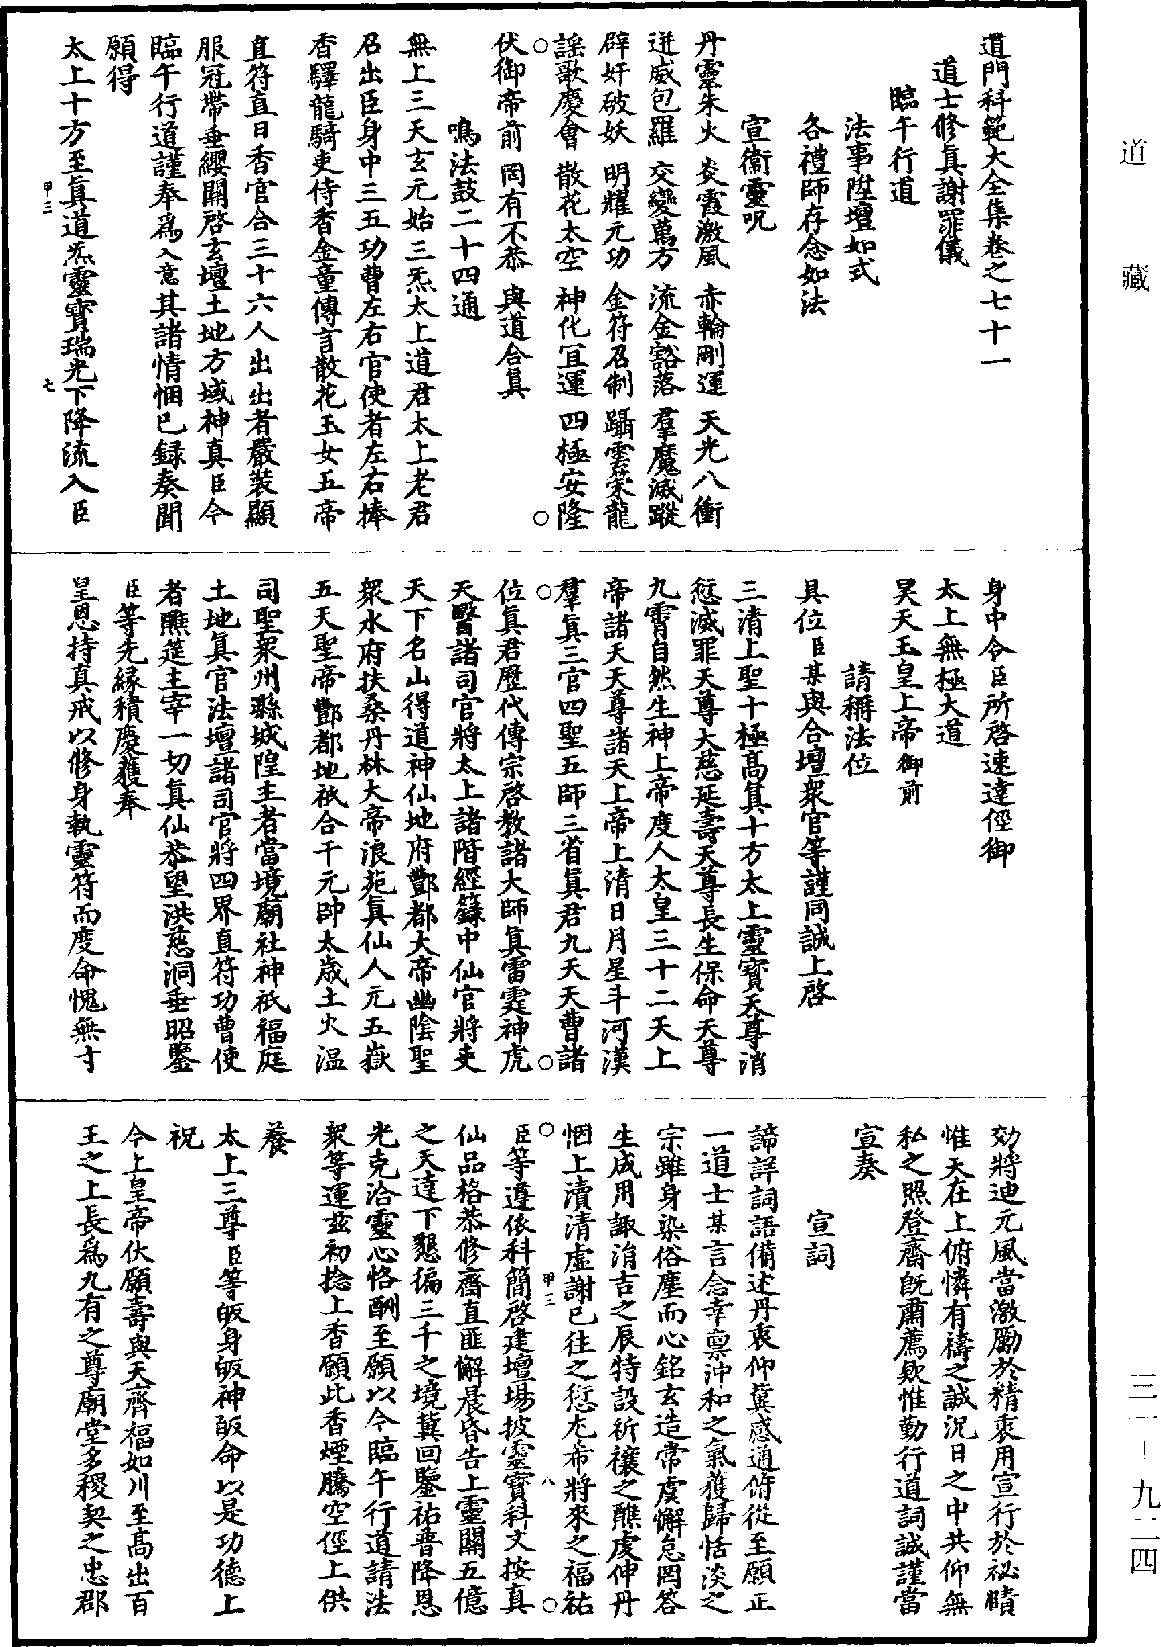 道藏
三一－九二四
道門科範大全集卷之七十一
道士修真謝罪儀
臨午行道
法事陞壇如式
各禮師存念如法
宣衛靈呪
丹靈朱火　炎霞激風　赤輪剛運　天光八衝
迸威包羅　交變萬方　流金豁落　羣魔滅蹤
辟奸破妖　明耀元功　金符召制　躡雲策龍
謡歌慶會　散花太空　神化冝運　四極安隆
伏御帝前　罔有不恭　與道合真
鳴法鼓二十四通
無上三天玄元始三炁太上道君太上老君
召出臣身中三五功曹左右官使者左右捧
香驛龍騎吏侍香金童傳言散花玉女五帝
直符直日香官合三十六人出出者嚴裝顯
服冠帶垂纓關啓玄壇土地方域神真臣今
臨午行道謹奉爲入意其諸情悃已録奏聞
願得
太上十方至真道炁靈寶瑞光下降流入臣
甲三　七
身中令臣所啓速達徑御
太上無極大道
昊天玉皇上帝御前
請稱法位
具位臣某與合壇衆官等謹同誠上啓
三清上聖十極高真十方太上靈寶天尊消
愆滅罪天尊大慈延壽天尊長生保命天尊
九霄自然生神上帝度人太皇三十二天上
帝諸天天尊諸天上帝上清日月星斗河漢
羣真三官四聖五師三省真君九天天曹諸
位真君歷代傳宗啓教諸大師真雷霆神虎
天醫諸司官將太上諸階經籙中仙官將吏
天下名山得道神仙地府酆都大帝幽陰聖
衆水府扶桑丹林大帝浪苑真仙人元五嶽
五天聖帝酆都地祇合千元帥太歲土火温
司聖衆州縣城隍主者當境廟社神祇福庭
土地真官法壇諸司官將四界直符功曹使
者醮筵主宰一切真仙恭望洪慈洞垂昭鑒
臣等先緣積慶獲奉
皇恩持真戒以修身執靈符而度命愧無寸
効將迪元風當激勵於精衷用宣行於祕賾
惟天在上俯憐有禱之誠況日之中共仰無
私之照登齋旣肅薦欵惟勤行道詞誠謹當
宣奏
宣詞
諦詳詞語備述丹衷仰冀感通俯從至願正
一道士某言念幸禀沖和之氣獲歸恬淡之
宗雖身染俗塵而心銘玄造常虔懈怠罔答
生成用諏涓吉之辰特設祈禳之醮虔伸丹
悃上瀆清虛謝已往之愆尤希將來之福祐
臣等遵依科簡啓建壇場披靈寶科文按真
甲三　八
仙品格恭修齋直匪懈晨昏告上靈關五億
之天達下懇徧三千之境冀回鑒祐普降恩
光克洽靈心恪酬至願以今臨午行道請法
衆等運兹初捻上香願此香煙騰空徑上供
養
太上三尊臣等皈身皈神皈命以是功德上
祝
今上皇帝伏願壽與天齊福如川至高出百
王之上長爲九有之尊廟堂多稷契之忠郡